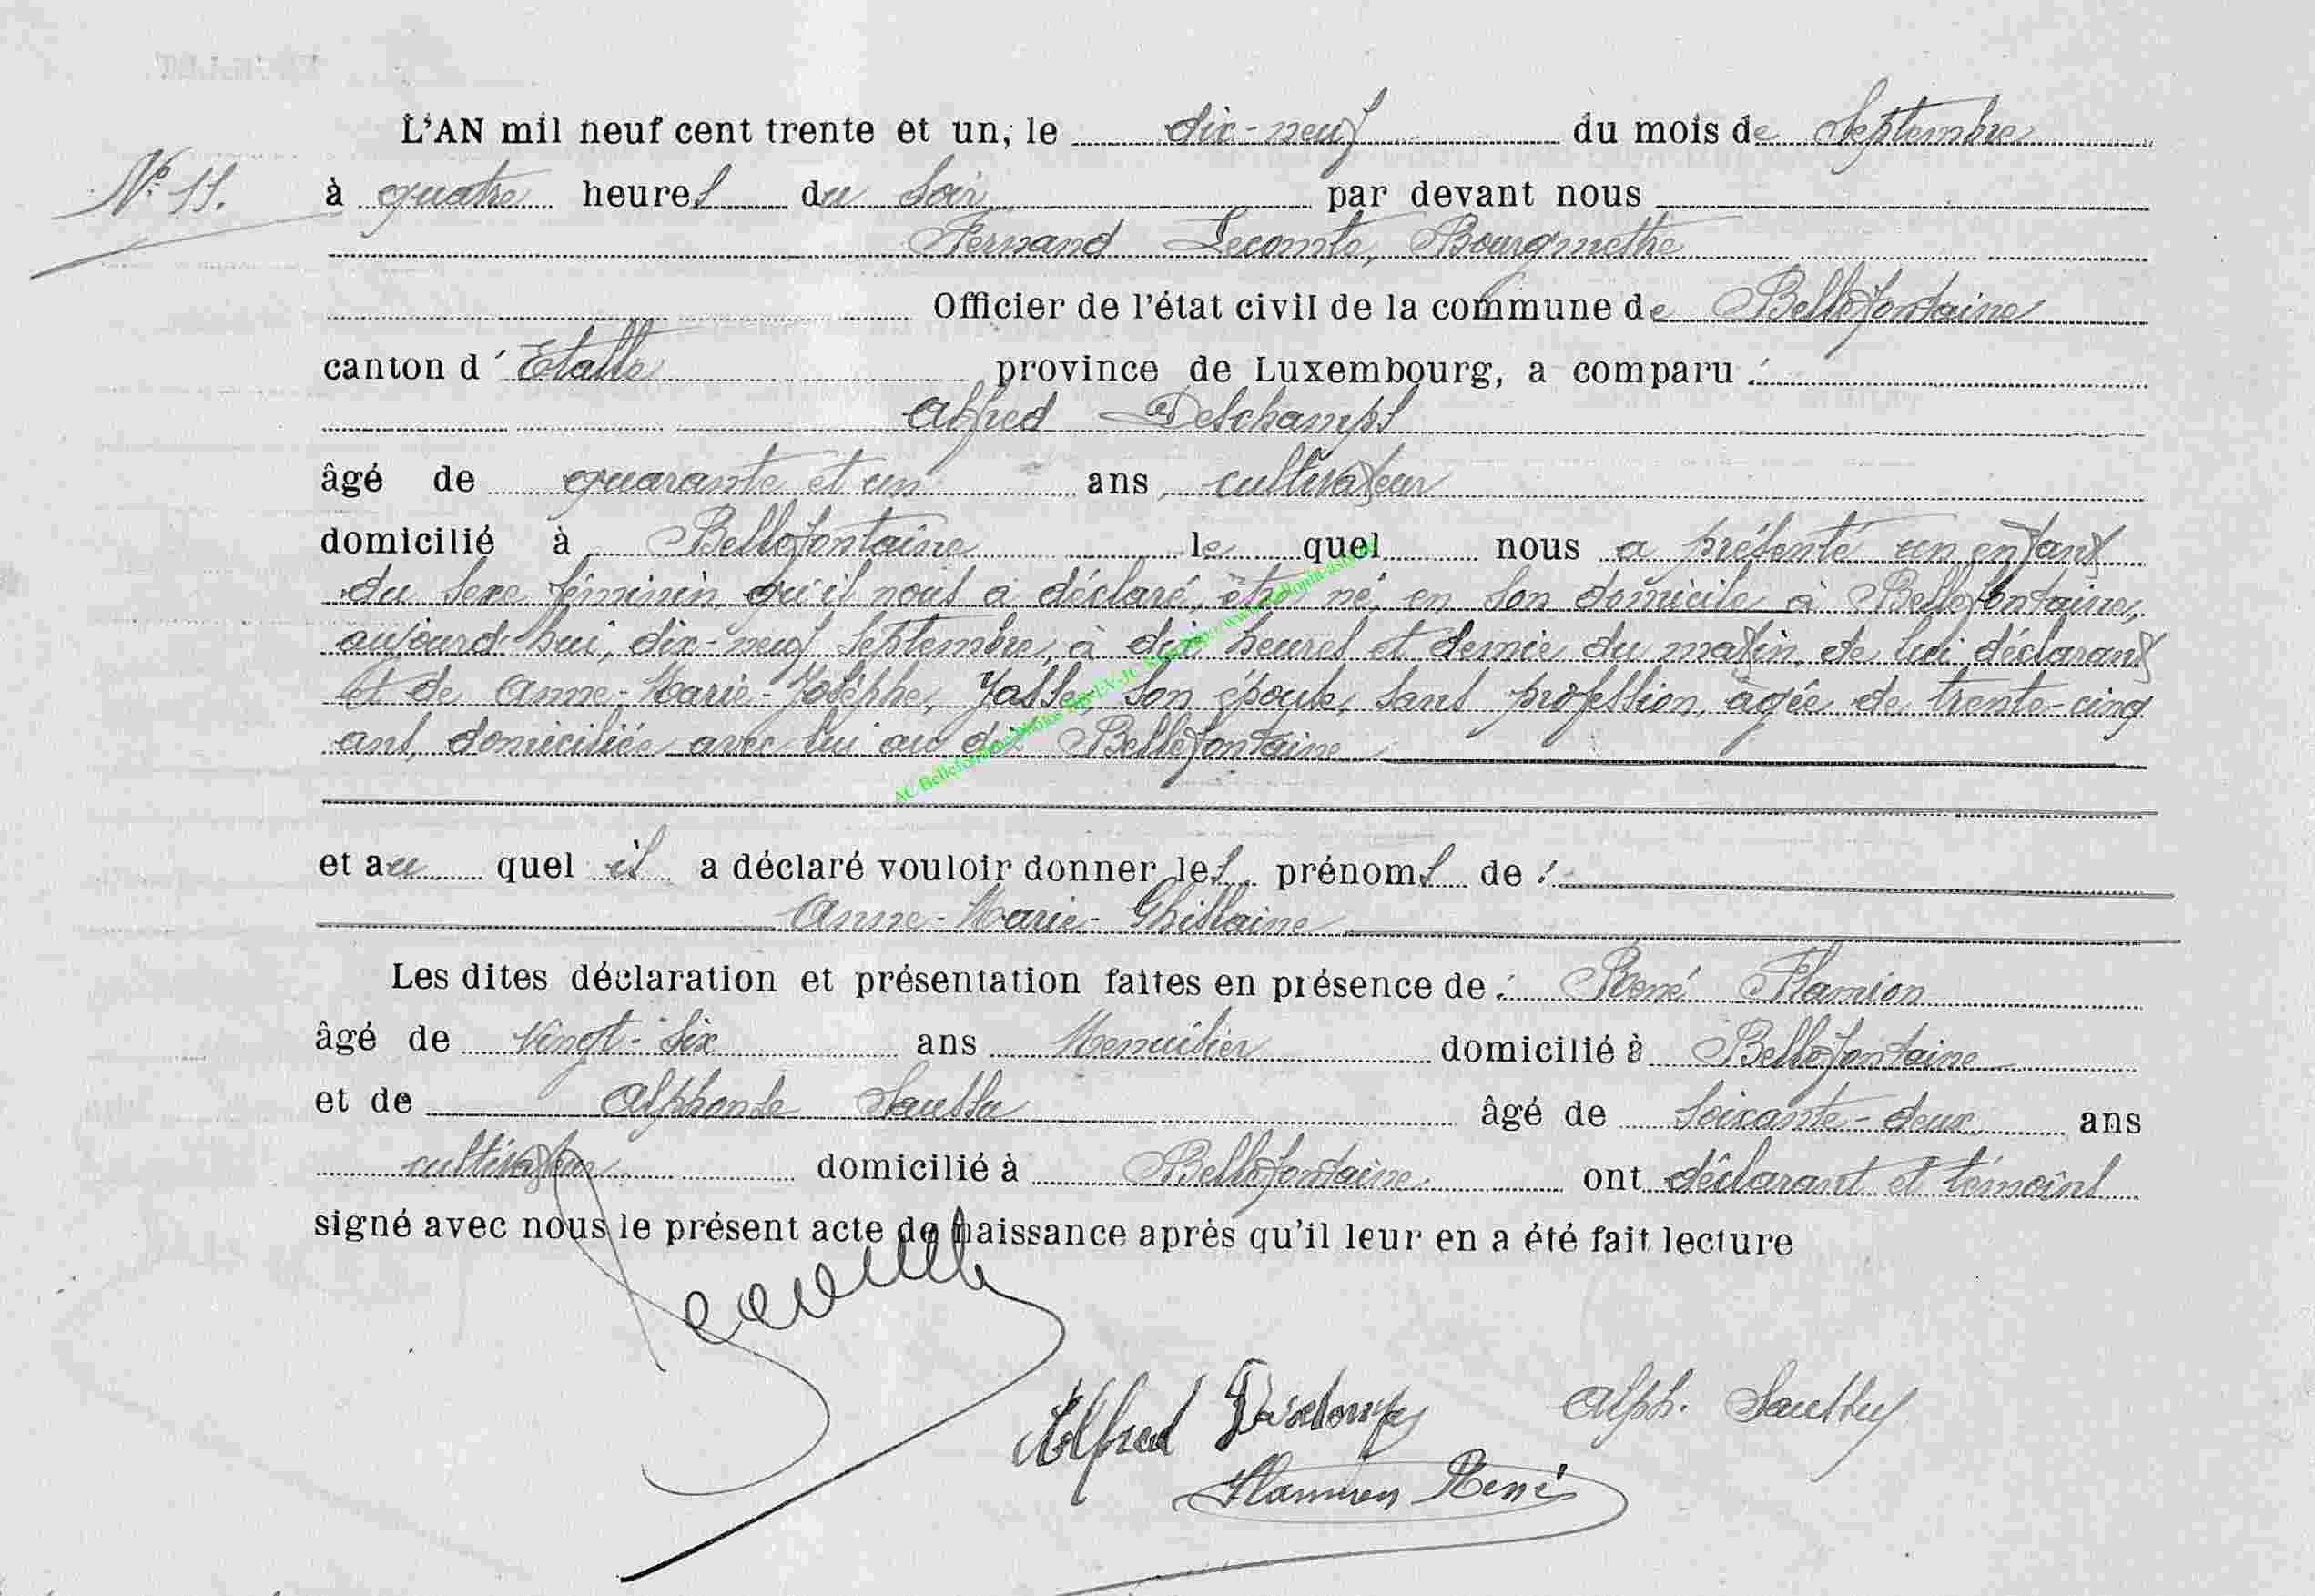 L'AN mil neuf cent trente et un, le dix-neuf du mois de Septembre
N° 11.
à quatre heures du soir par devant nous
Fernand Lecomte, Bourgmestre
Officier de l'état civil de la commune de Bellefontaine
canton d'Etalle province de Luxembourg, a comparu :
Alfred Deschamps
âgé de quarante et un ans, cultivateur
domicilié à Bellefontaine le quel nous a présenté un enfant
du sexe féminin, qu'il nous a déclaré, être né, en son domicile à Bellefontaine,
aujourd'hui, dix-neuf septembre, à dix heures et demie du matin, de lui déclarant
et de Anne-Marie-Josèphe, Jasse, son épouse, sans profession, âgée de trente-cinq
ans, domiciliée avec lui au dit Bellefontaine
et au quel il a déclaré vouloir donner les prénoms de :
Anne-Marie-Ghislaine
Les dites déclaration et présentation faites en présence de : René Flamion
âgé de vingt-six ans Menuisier domicilié à Bellefontaine
et de Alphonse Saussu âgé de soixante-deux ans
cultivateur domicilié à Bellefontaine ont déclarant et témoins
signé avec nous le présent acte de naissance après qu'il leur en a été fait lecture
Alfred Deschamps Alph.
Flamion René